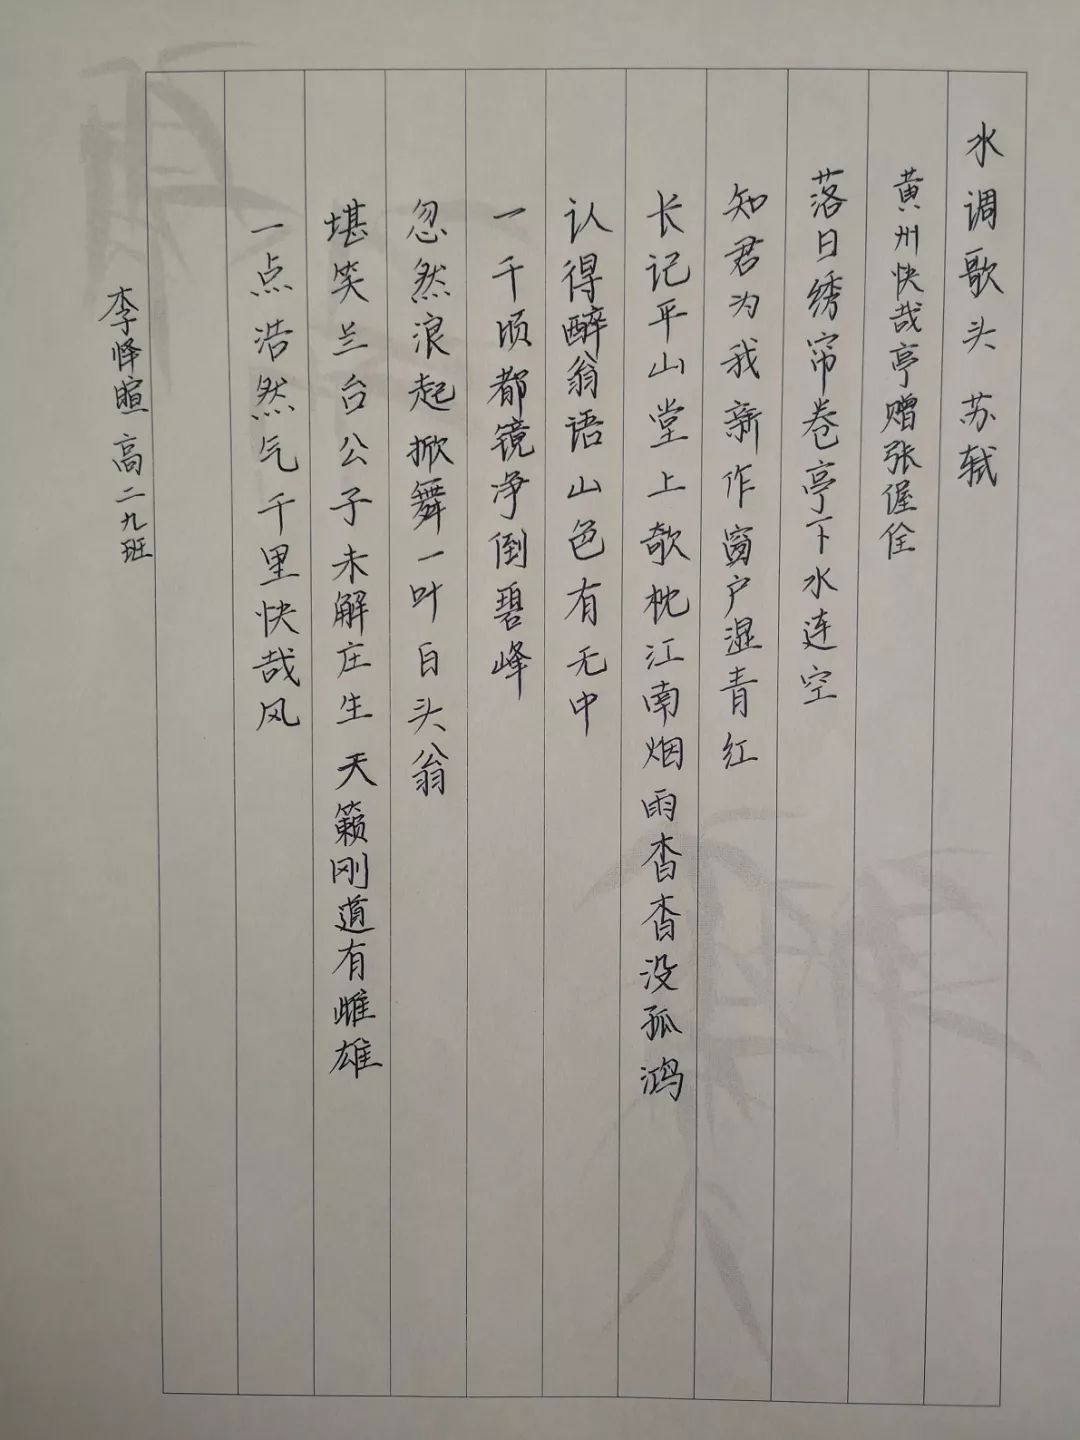 水调歌头 苏轼
黄州快哉亭赠张偓佺
落日绣帘卷亭下水连空
知君为我新作窗户湿青红
长记平山堂上欹枕江南烟雨杳杳没孤鸿
认得醉翁语山色有无中
一千顷都镜净倒碧峰
忽然浪起掀舞一叶白头翁
堪笑兰台公子未解庄生天籁刚道有雌雄
一点浩然气千里快哉风
李怿暄 高二九班